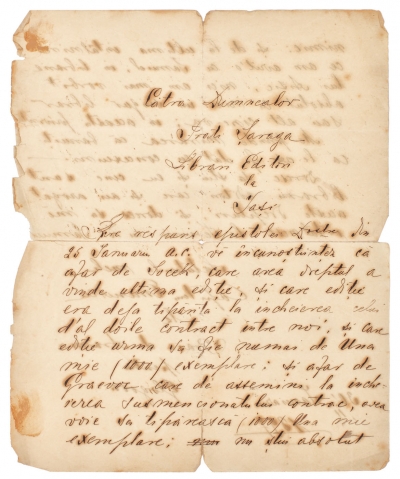 Cotra Dumnealor
Frati Șaraga
Librari Editori
la
Iași
Ca respuns epistolei Dvstre din
25 Januariu a.c. ve incunostiintez ca
afar de Socek, care avea dreptul a
vinde ultima editie, si care editie
era deja tiparita la incheierea celui
d'al doile contract intre noi, si care
editie urma sa fie numai de Una
mie (1000) exemplare: si afar de
Graeve care de assemine la inche-
erea susmencionatului contrac, avea
voie sa tipareasca (1000) Una mie
exemplare: nu știu absolut